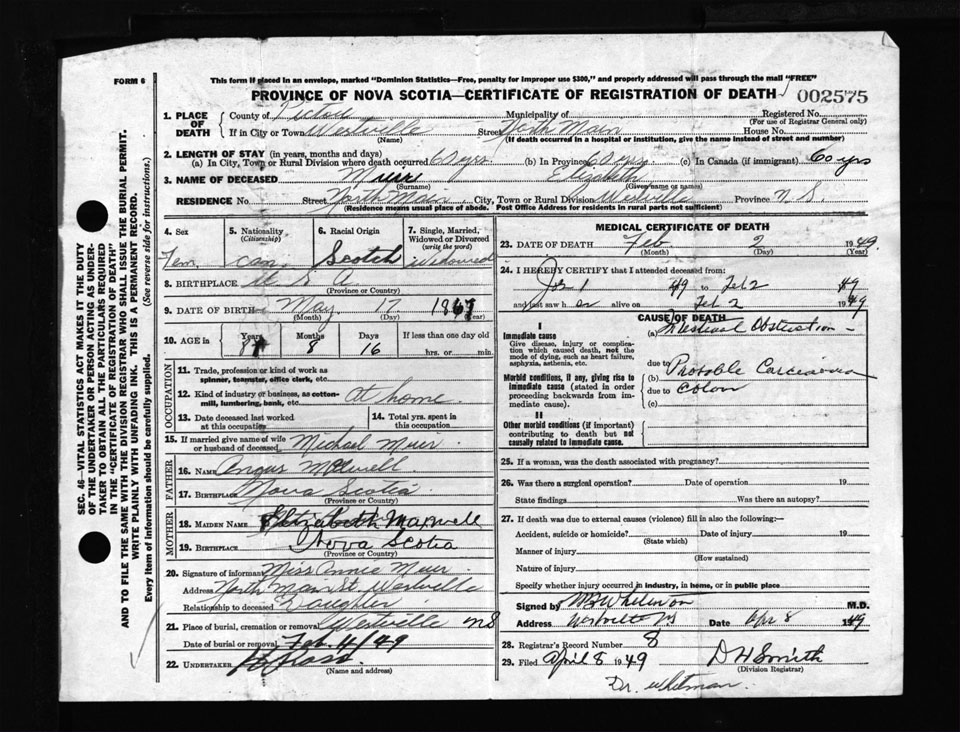 FORM 6
This form if placed in an envelope, marked "Dominion Statistics—Free, penalty for improper use $300," and properly addressed will pass through the mail "FREE"
PROVINCE OF NOVA SCOTIA—CERTIFICATE OF REGISTRATION OF DEATH 002575
1. PLACE OF DEATH
County of Pictou Municipality of Registered No.
(For use of Registrar General only)
If in City or Town Westville Street North Main House No.
(Name) (If death occurred in a hospital or institution, give the name instead of street and number)
2. LENGTH OF STAY (in years, months and days)
(a) In City, Town or Rural Division where death occurred 60 yrs. (b) In Province 60 yrs. (c) In Canada (if immigrant) 60 yrs
3. NAME OF DECEASED Muir Elizabeth
(Surname) (Given name or names)
RESIDENCE No Street North Main City, Town or Rural Division Westville Province N.S.
(Residence means usual place of abode. Post Office Address for residents in rural parts not sufficient)
4. Sex Fem
5. Nationality (Citizenship) Can.
6. Racial Origin Scotch
7. Single, Married, Widowed or Divorced (write the word) Widowed
8. BIRTHPLACE U.S.A.
(Province or Country)
9. DATE OF BIRTH May 17 1867
(Month) (Day) (Year)
10. AGE in Years Months Days If less than one day old
81 8 16 hrs. or min.
OCCUPATION
11. Trade, profession or kind of work as spinner, teamster, office clerk, etc.
12. Kind of industry or business, as cotton-mill, lumbering, bank, etc. At home
13. Date deceased last worked at this occupation
14. Total yrs. spent in this occupation
15. If married give name of wife or husband of deceased Michael Muir
FATHER
16. NAME Angus Maxwell
17. BIRTHPLACE Nova Scotia
(Province or Country)
MOTHER
18. MAIDEN NAME Elizabeth Maxwell
19. BIRTHPLACE Nova Scotia
(Province or Country)
20. Signature of informant Miss Annie Muir
Address North Main St. Westville
Relationship to deceased Daughter
21. Place of burial, cremation or removal Westville NS
Date of burial or removal Feb. 4/49
22. UNDERTAKER
(Name and address)
MEDICAL CERTIFICATE OF DEATH
23. DATE OF DEATH Feb 2 1949
(Month) (Day) (Year)
24. I HEREBY CERTIFY that I attended deceased from:
Jan 1 49 to Feb 2 49
and last saw her alive on Feb 2 1949
CAUSE OF DEATH
I
Immediate cause
Give disease, injury or complication which caused death, not the mode of dying, such as heart failure, asphyxia, asthenia, etc.
(a) Intestinal Obstruction
due to
Morbid conditions, if any, giving rise to immediate cause (stated in order proceeding backwards from immediate cause).
(b) Probable Carcinoma
due to Colon
(c)
II
Other morbid conditions (if important) contributing to death but not causally related to immediate cause.
25. If a woman, was the death associated with pregnancy?
26. Was there a surgical operation? Date of operation 19
State findings Was there an autopsy?
27. If death was due to external causes (violence) fill in also the following:—
Accident, suicide or homicide? Date of injury 19
(State which)
Manner of injury
(How sustained)
Nature of injury
Specify whether injury occurred in industry, in home, or in public place
Signed by M.D.
Address Westville NS Date Apr 8 1949
28. Registrar's Record Number 8
29. Filed April 8 1949 D H Smith
(Division Registrar)
Dr. Whitman.
SEC. 46—VITAL STATISTICS ACT MAKES IT THE DUTY
OF THE UNDERTAKER OR PERSON ACTING AS UNDER-
TAKER TO OBTAIN ALL THE PARTICULARS REQUIRED
IN THE "CERTIFICATE OF REGISTRATION OF DEATH"
AND TO FILE THE SAME WITH THE DIVISION REGISTRAR WHO SHALL ISSUE THE BURIAL PERMIT.
WRITE PLAINLY WITH UNFADING INK. THIS IS A PERMANENT RECORD.
Every item of information should be carefully supplied. (See reverse side for instructions.)